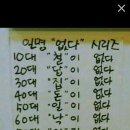 인명 "없다" 시리즈
10대 "철"이 없다
20대 "답"이 없다
30대 "집"이 없다
40대 "돈"이 없다
50대 "일"이 없다
60대 "낙"이 없다